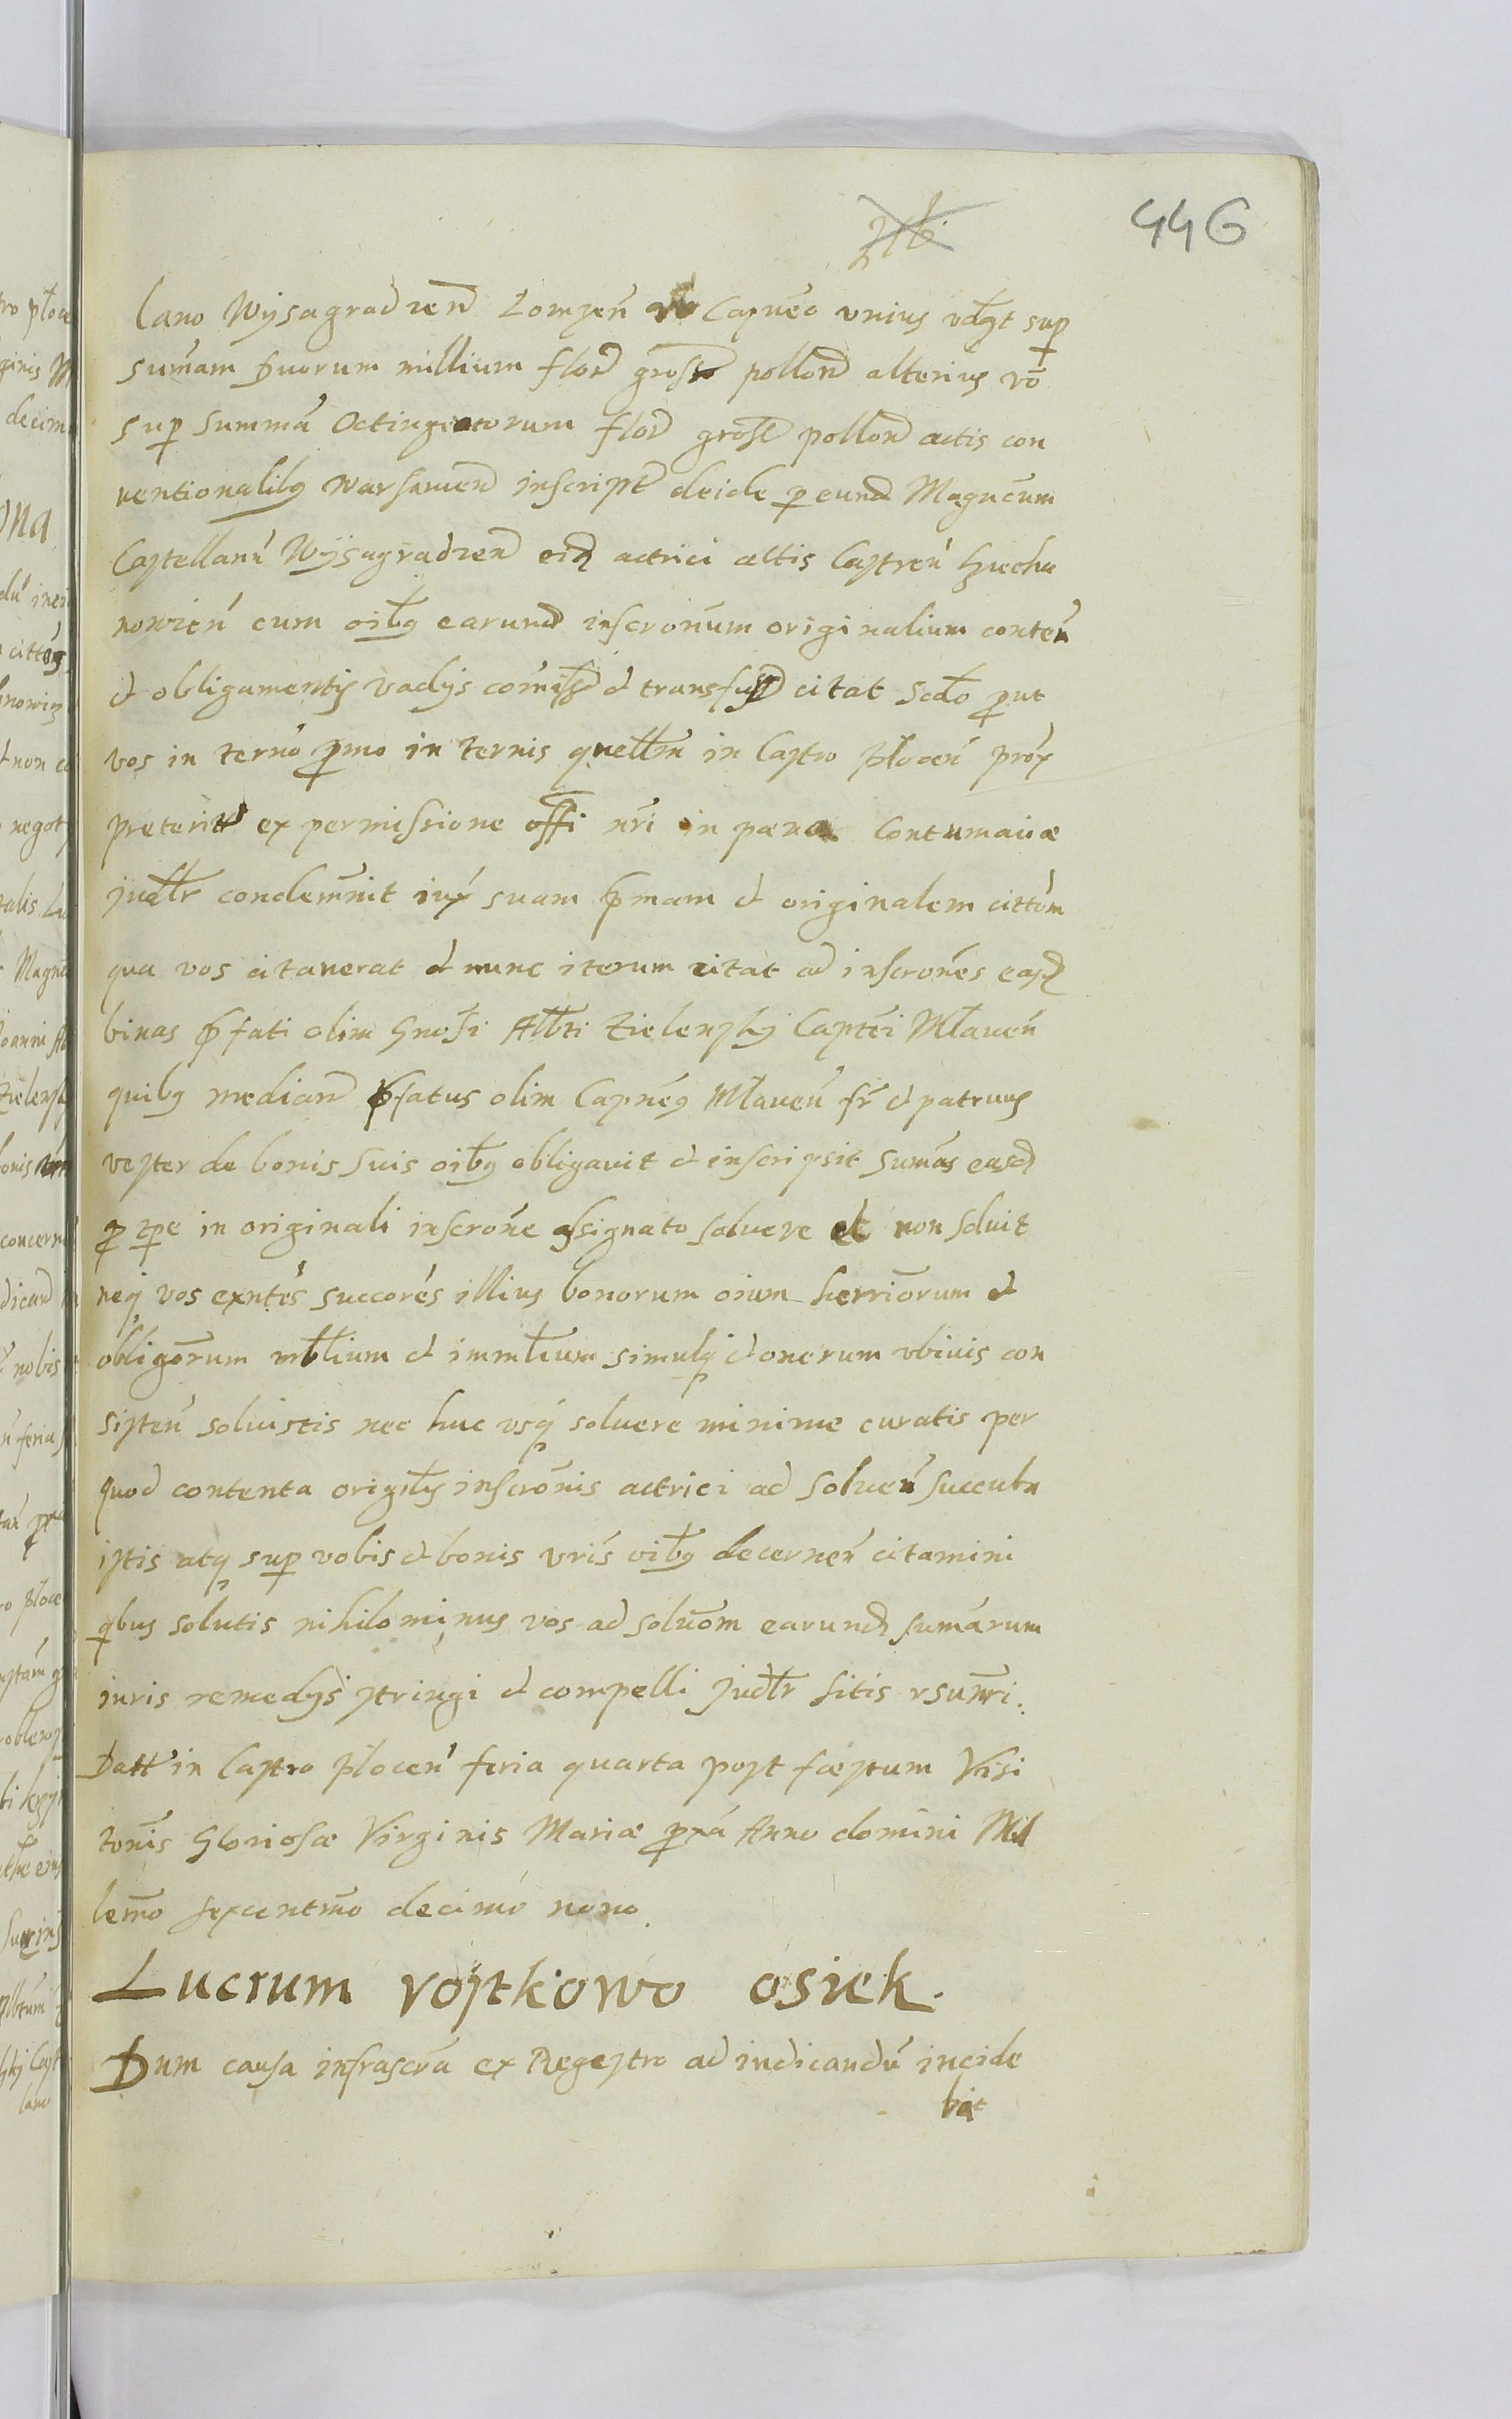 446
lano Wysagradzen Lomzen Capneo unius vdlgt sup
sumam duorum millium flor gross pollon alterius vo
sup summa Octingentorum flor gross pollon actis con
uentionalibq warsauien inscript deide p eund Magncum
Castellanu Wysagradzen eid actrici actis Castren
nowien cum oibq earund inscronum originalium conten
et obligamentis vadys comiss et transfuss citat Scdo put
vos in termo pmo in termis quellm in Castro plocen prox
preterit ex permissione offi nri in pæna Contumaciæ
judlr condemnit iux suam pmam et originalem cittom
qua vos citauerat et nunc iterum citat ad inscrones easd
binas pfati olim Gnosi Albti Zielensky Captei Mlauen
quibq median pfatus olim Capneq Mlauen fr et patruus
vester de bonis suis oibq obligauit et inscripsit sumas easd
p tpe in originali inscrone assignato soluere et non soluit
neq vos exntes succores illius bonorum oium herriorum et
obligorum mblium et immblium simulq et onerum vbiuis con
sisten soluistis nec huc usq soluere minime curatis per
quod contenta origilis inscronis actrici ad soluen succubu
istis atq sup vobis et bonis vris oibq decernen citamini
qbus solutis nihilominus vos ad soluom earund sumarum
iuris remedys stringi et compelli judlr sitis rsunri.
Datt in Castro plocen feria quarta post fæstum Visi
tonis Gloriosæ Virginis Mariæ pxa Anno domini Mil
lemo sexcentmo decimo nono.
Lucrum rostkowo osiek.
Dum causa infrascra ex Regestro ad iudicandu incide
bat